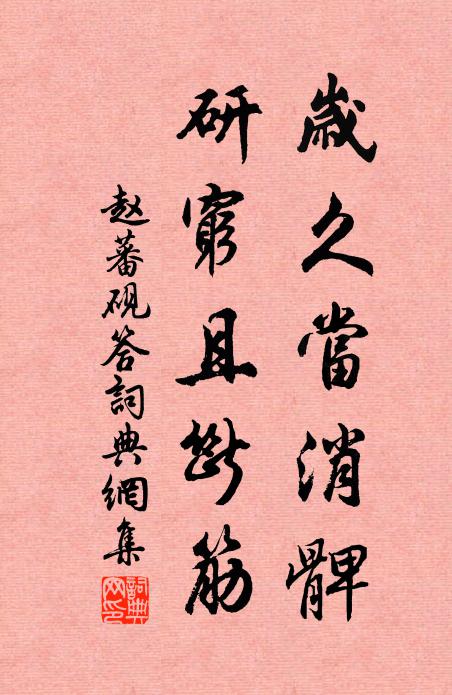 歲久當消髀
研窮且斷筋
赵蕃硯答詞典網集
詞典網印